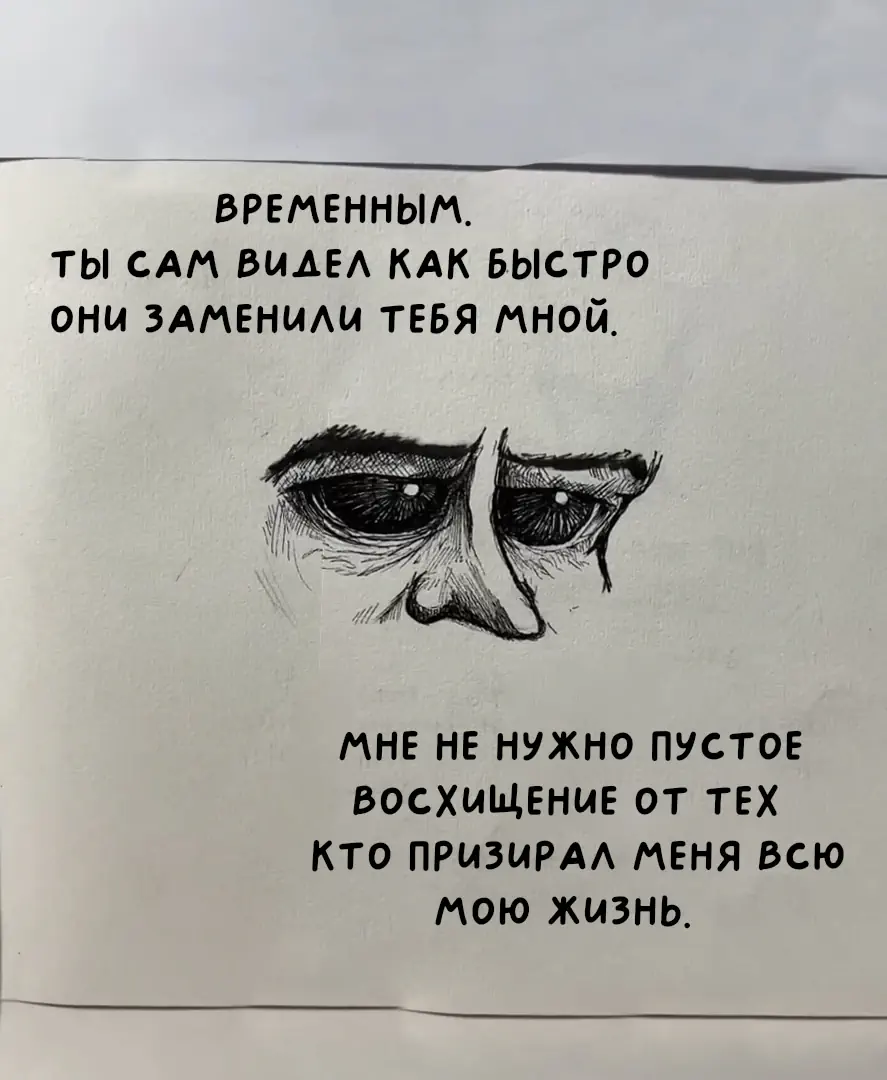 ВРЕМЕННЫМ.
ТЫ САМ ВИДЕЛ КАК БЫСТРО
ОНИ ЗАМЕНИЛИ ТЕБЯ МНОЙ.
МНЕ НЕ НУЖНО ПУСТОЕ
ВОСХИЩЕНИЕ ОТ ТЕХ
КТО ПРИЗИРАЛ МЕНЯ ВСЮ
МОЮ ЖИЗНЬ.